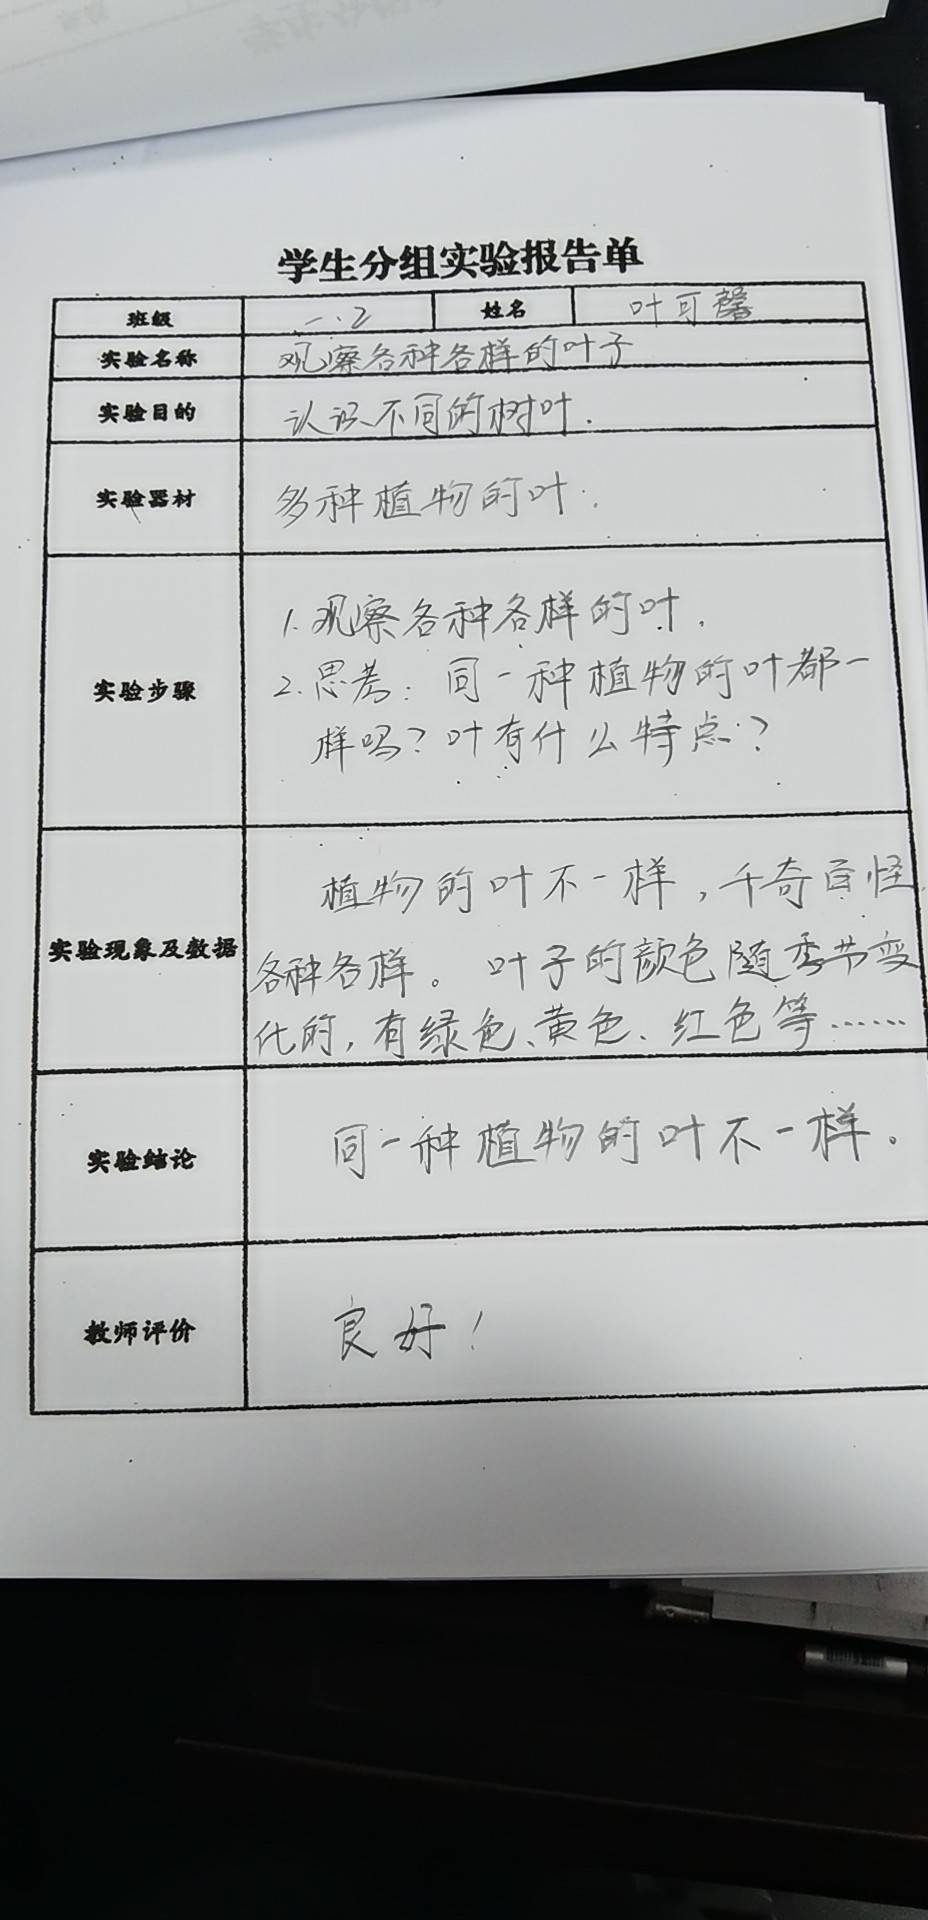 学生分组实验报告单
班级 一.2 姓名 叶可馨
实验名称 观察各种各样的叶子
实验目的 认识不同的树叶.
实验器材 多种植物的叶.
实验步骤
1.观察各种各样的叶.
2.思考:同一种植物的叶都一
样吗?叶有什么特点?
实验现象及数据
植物的叶不一样,千奇百怪
各种各样。叶子的颜色随季节变
化的,有绿色、黄色、红色等……
实验结论 同一种植物的叶不一样。
教师评价 良好!